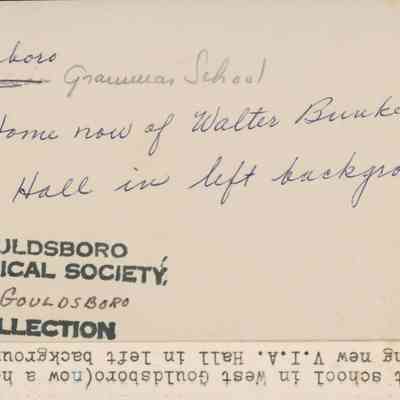 boro
Grammar School
Home now of Walter Bunke
Hall in left backgro
ULDSBORO
ICAL SOCIETY,
GOULDSBORO
LLECTION
t school in West Gouldsboro(now a h
ng new V.I.A. Hall in left backgrou